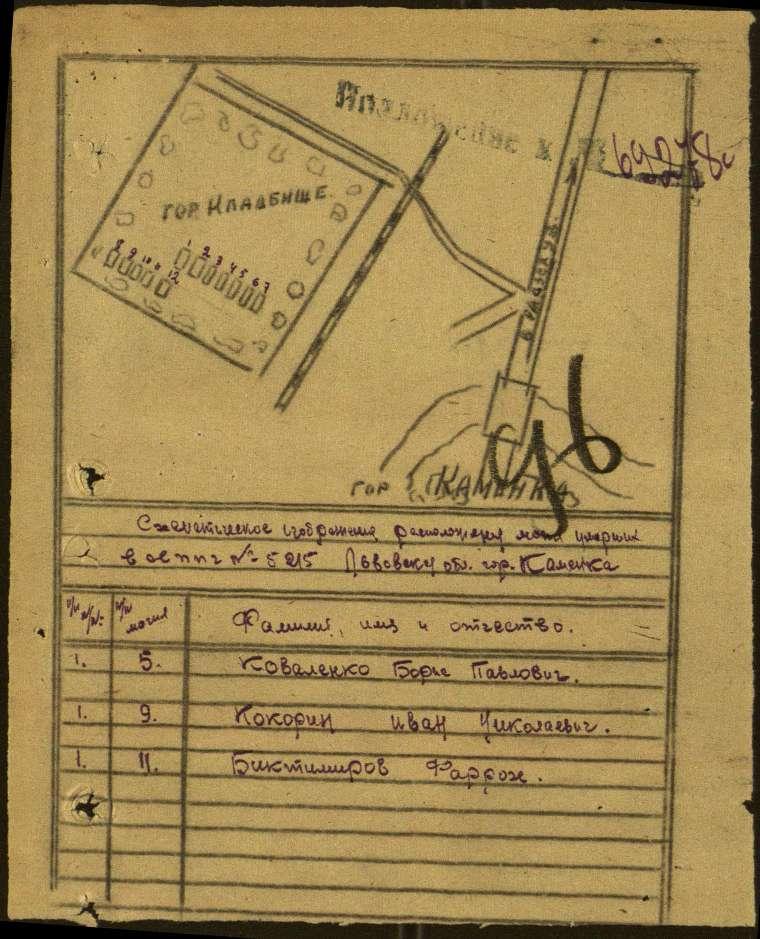 Приложение к
69248с
ГОР. КЛАДБИЩЕ.
1 2 3 4 5 6 7
8 9 10 11 12
В РАДЗЕХУВ.
96
ГОР. КАМЕНКА
Схематическое изображение расположения могил умерших
в оеппг № 5215 Львовск обл. гор. Каменка
п/п №№ №№ могил Фамилия, имя и отчество.
1. 5. Коваленко Борис Павлович.
1. 9. Кокорин Иван Николаевич.
1. 11. Биктимиров Фаррож.